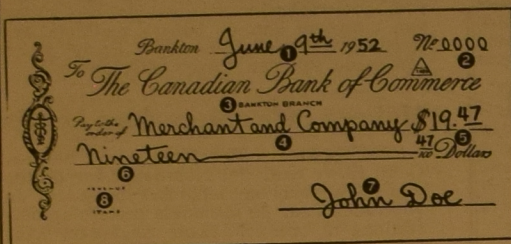 Bankton June 9th 1952 No 0000
1
2
To The Canadian Bank of Commerce
3 BANKTON BRANCH
Pay to the
order of Merchant and Company $19.47
4
5
Nineteen 47/100 Dollars
6
7
John Doe
8
STAMP